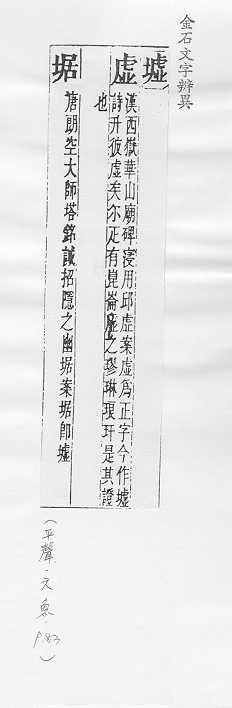 金石文字辨異
墟
虛 漢西嶽華山廟碑寖用邱虛案虛爲正字今作墟
詩升彼虛矣尔疋有崑崙虛之璆琳琅玕是其證
也
𡊢 唐朗空大師塔銘誠招隱之幽𡊢案𡊢卽墟
(平聲·六魚·P.83)